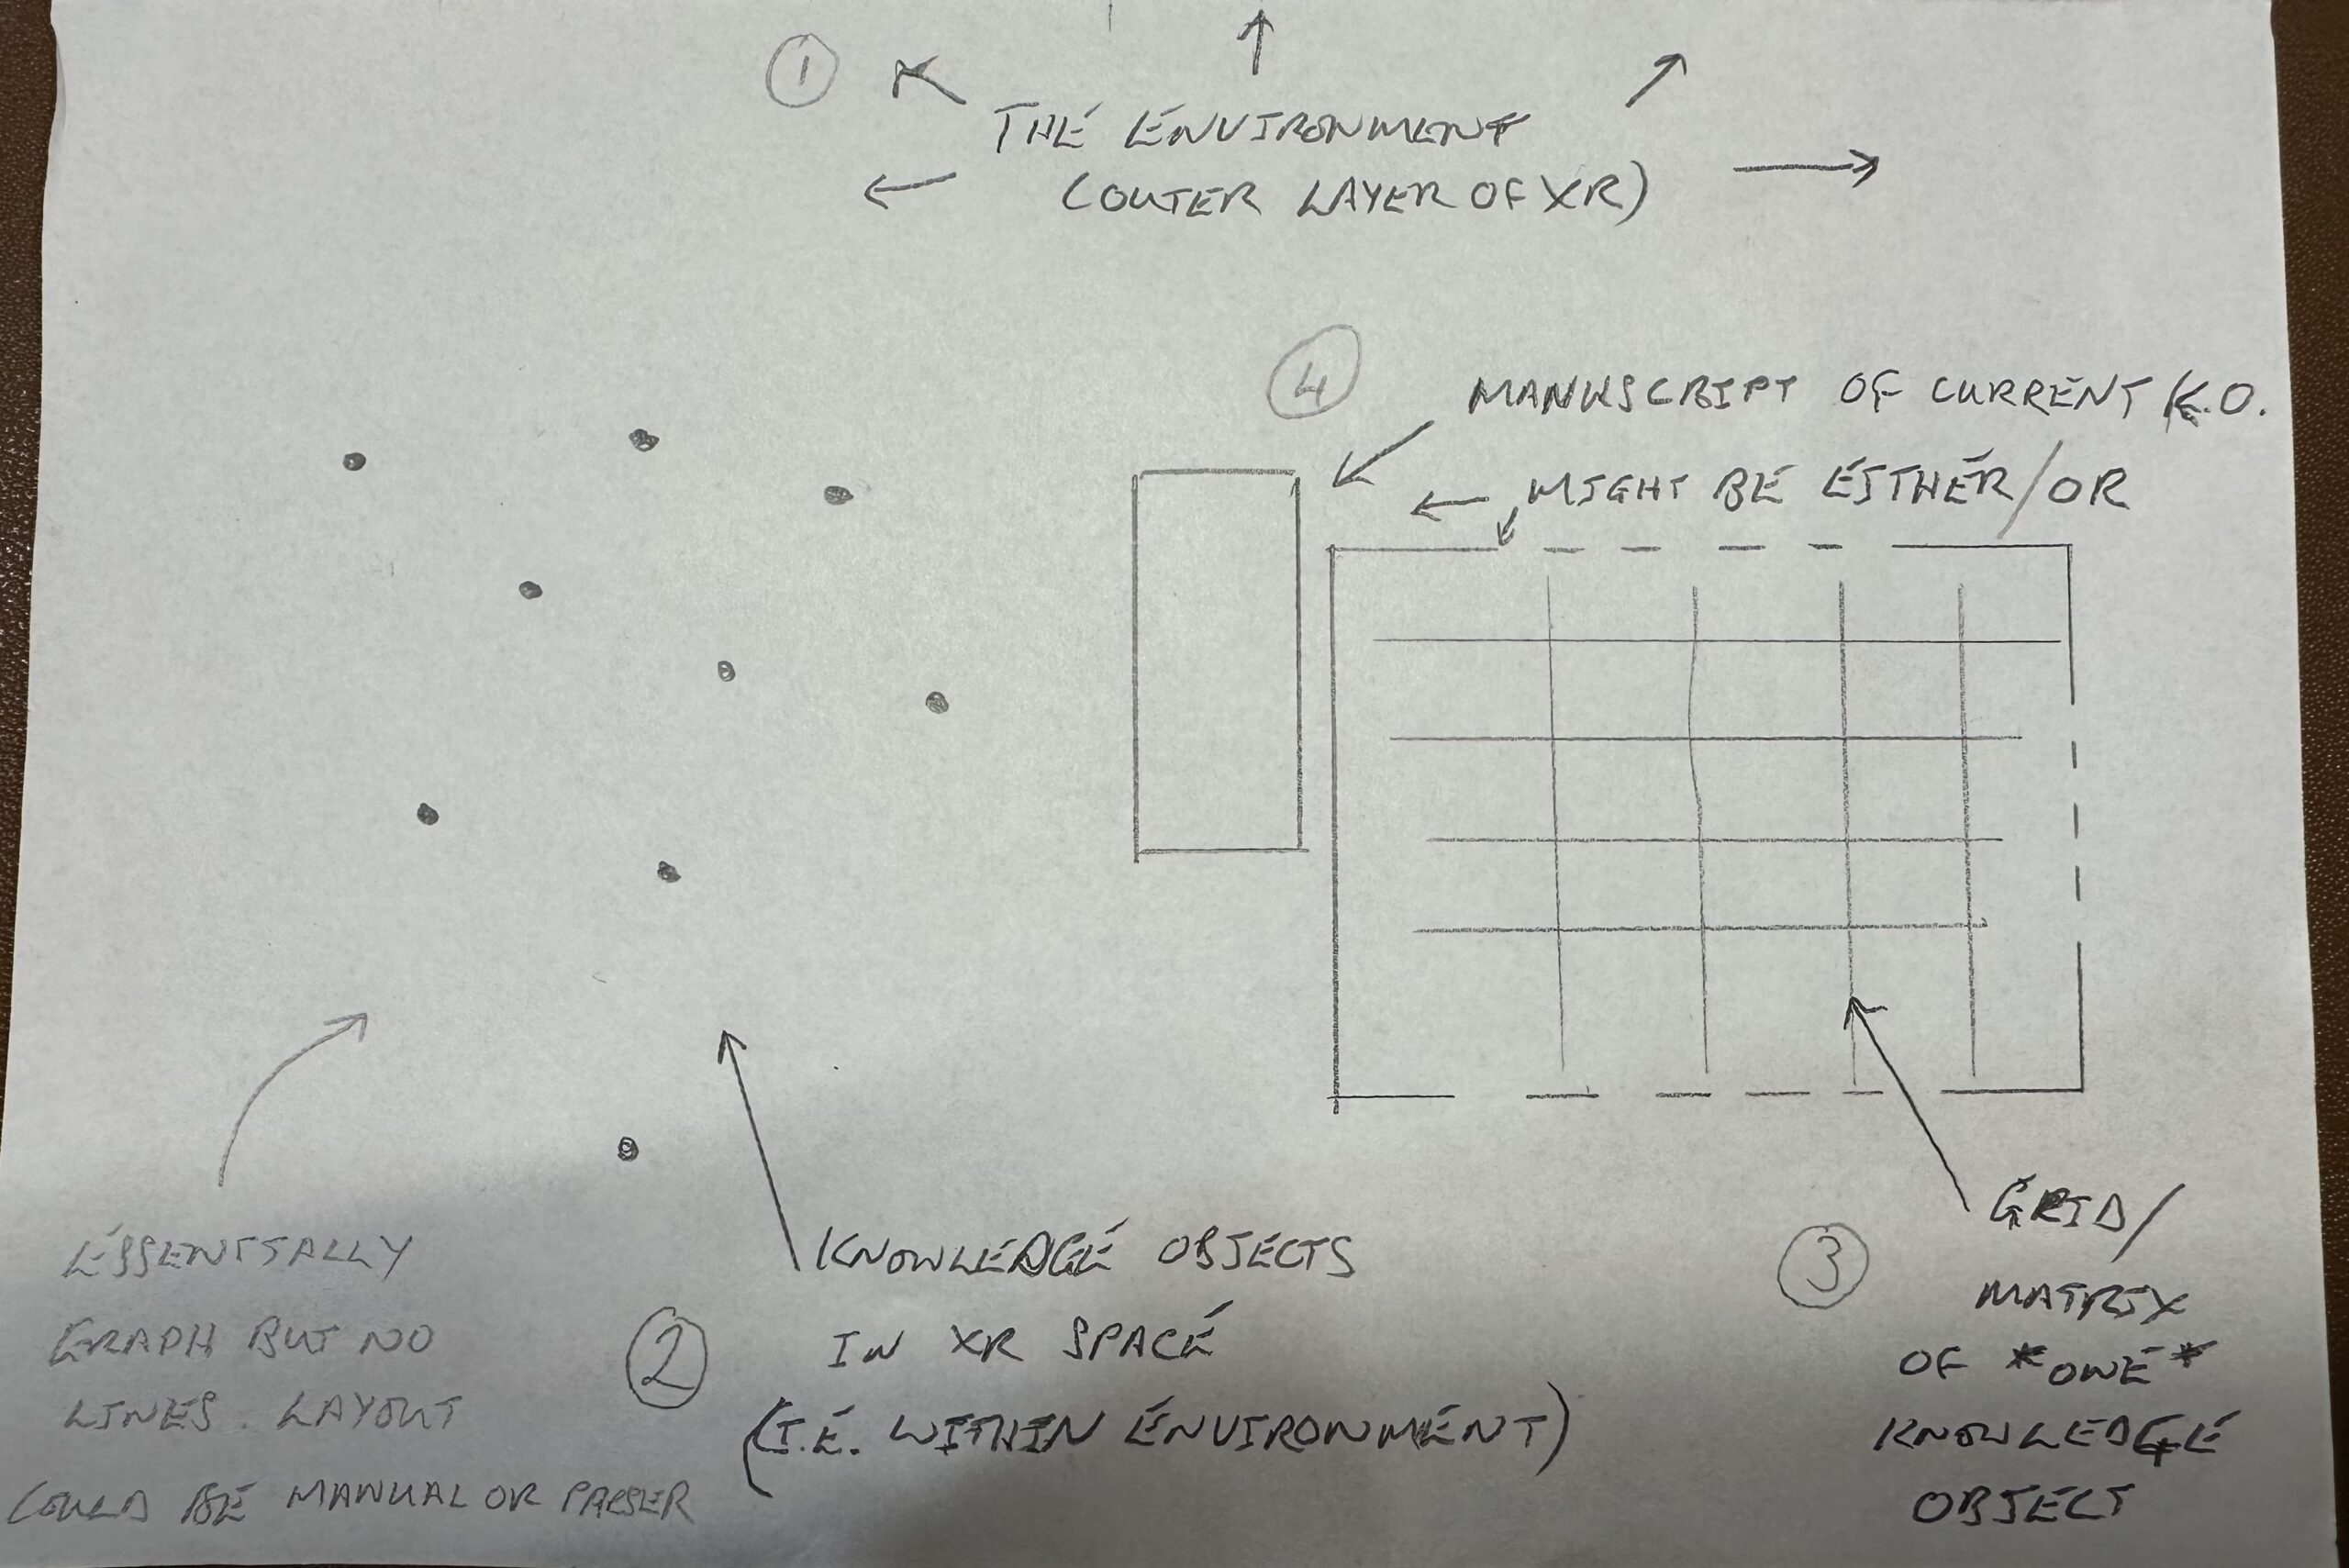 1
THE ENVIRONMENT
(OUTER LAYER OF XR)
4
MANUSCRIPT OF CURRENT K.O.
MIGHT BE EITHER/OR
ESSENTIALLY
GRAPH BUT NO
LINES. LAYOUT
COULD BE MANUAL OR PARSER
2
KNOWLEDGE OBJECTS
IN XR SPACE
(I.E. WITHIN ENVIRONMENT)
3
GRID/
MATRIX
OF *ONE*
KNOWLEDGE
OBJECT